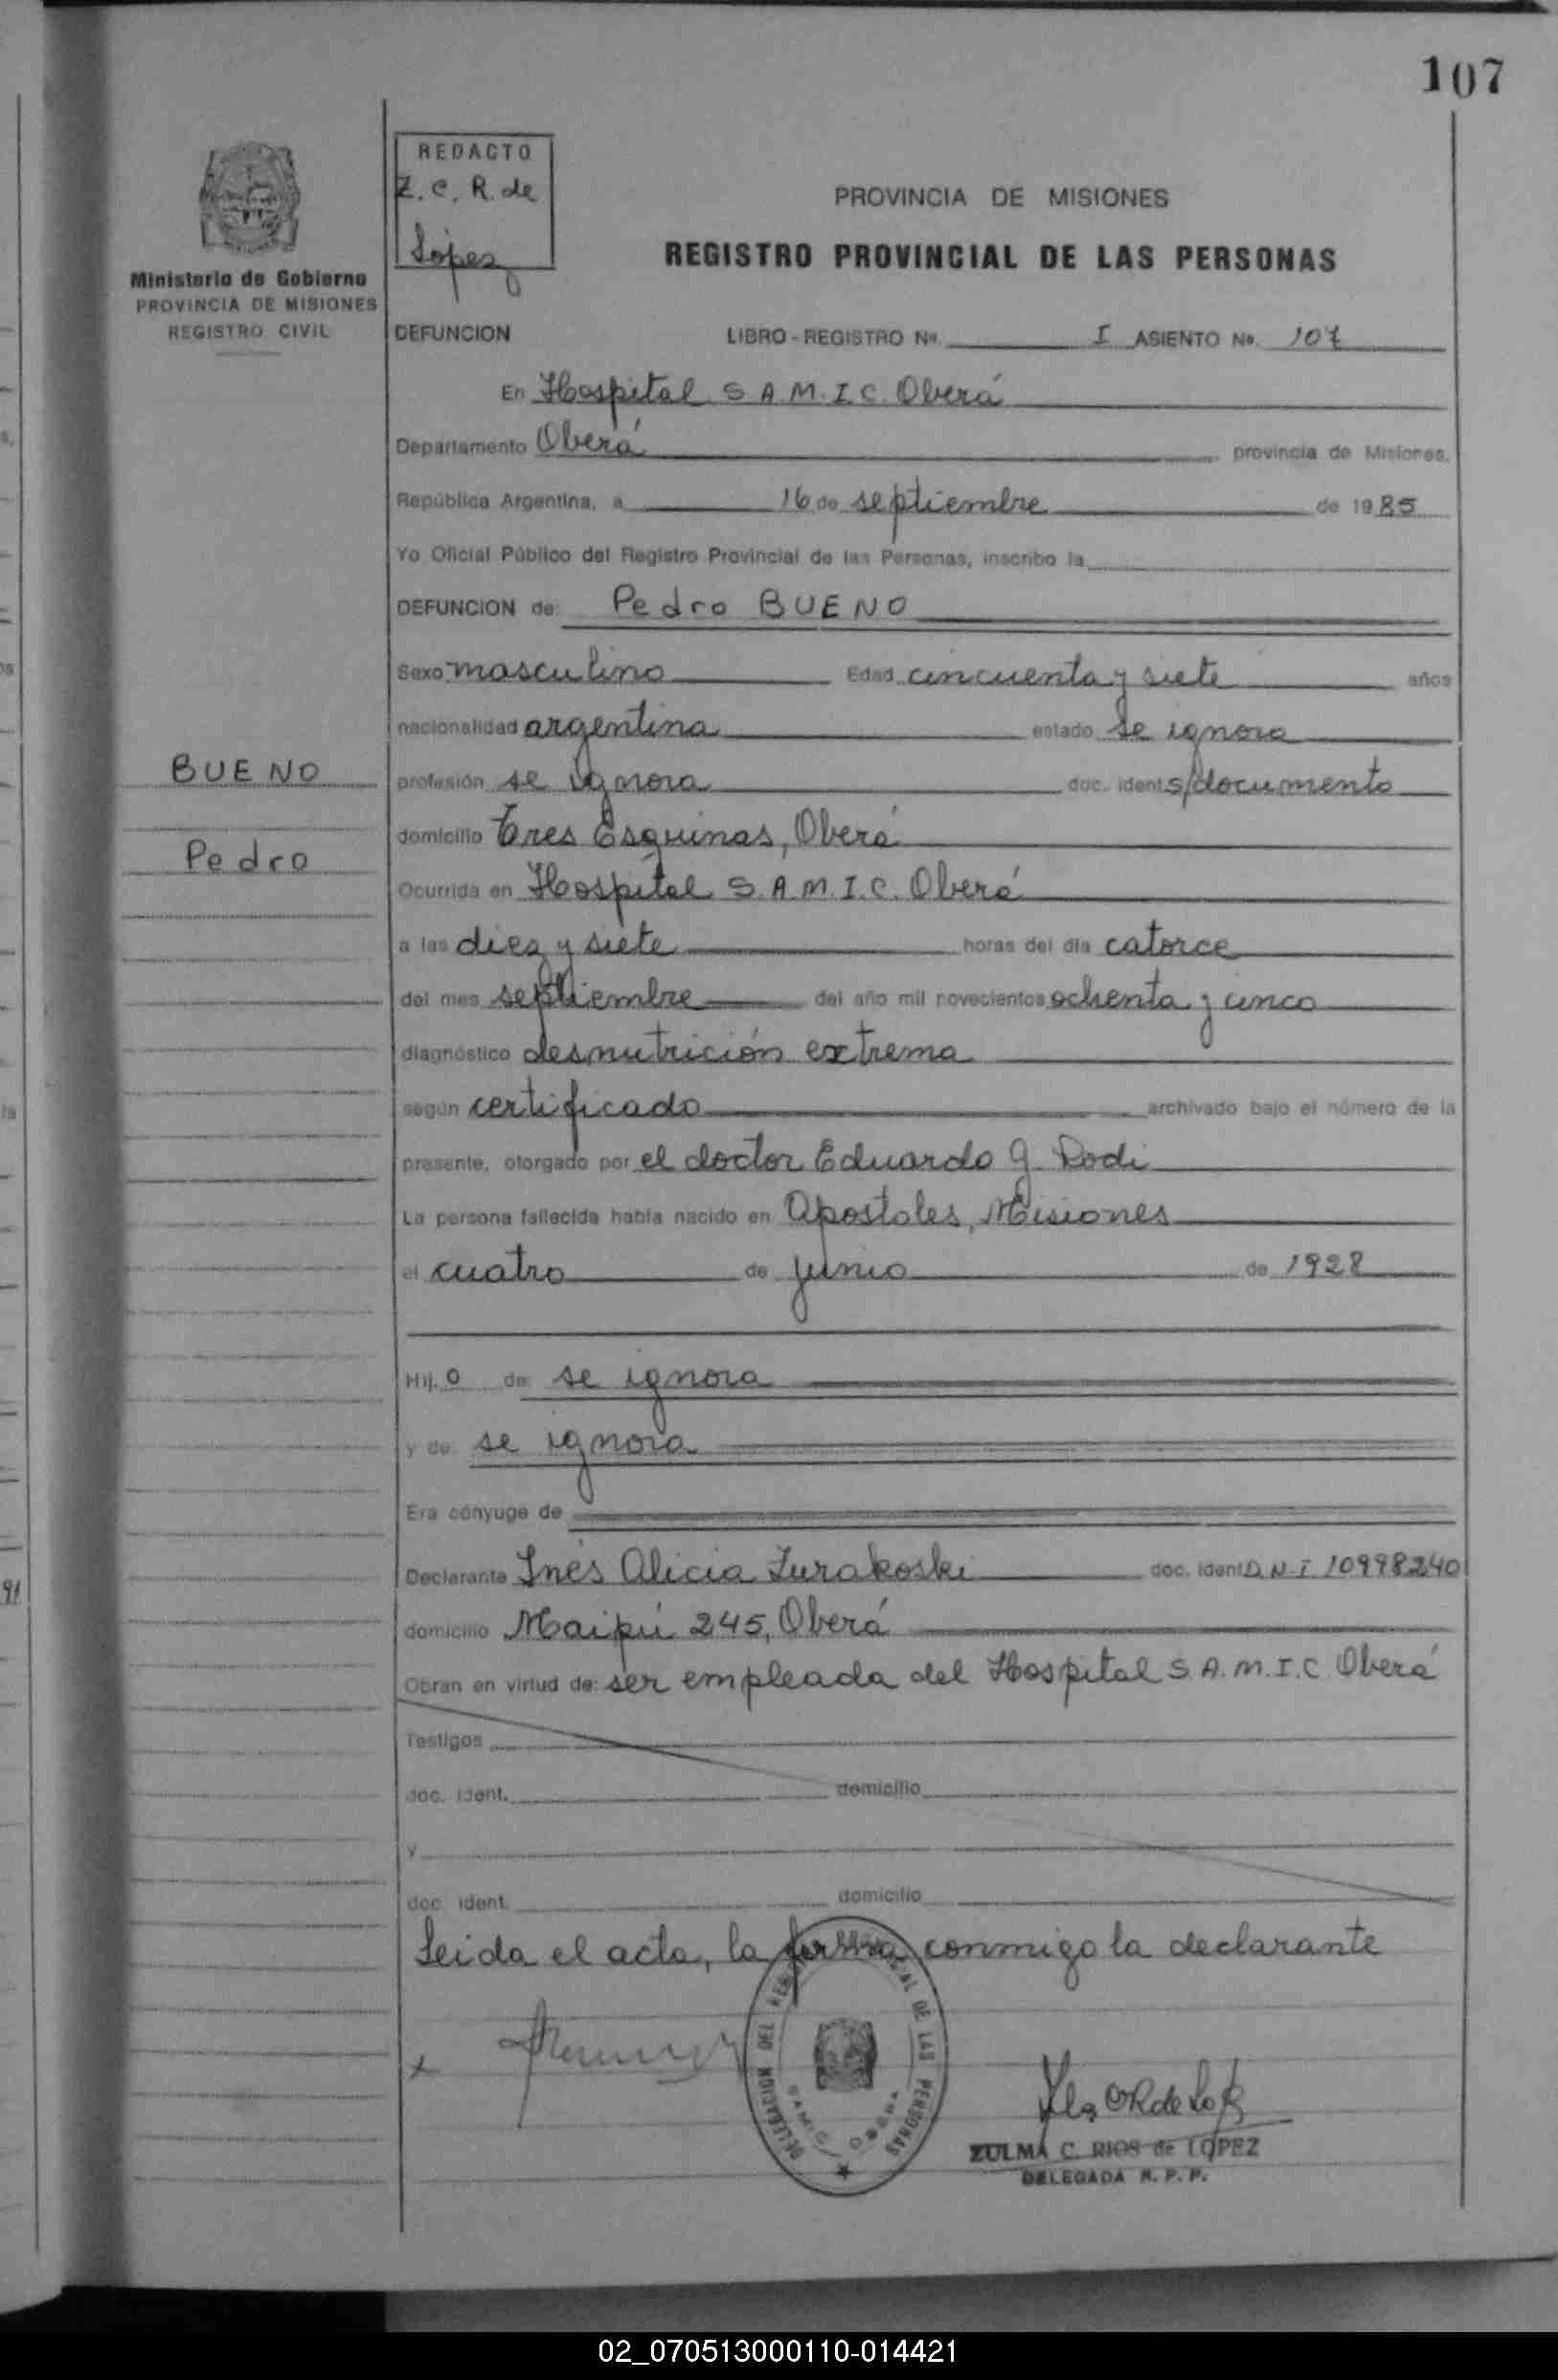 107
REDACTO
Z. C. R. de
López
Ministerio de Gobierno
PROVINCIA DE MISIONES
REGISTRO CIVIL
PROVINCIA DE MISIONES
REGISTRO PROVINCIAL DE LAS PERSONAS
DEFUNCION LIBRO - REGISTRO No. I ASIENTO No. 107
En Hospital S.A.M.I.C. Oberá
Departamento Oberá provincia de Misiones,
República Argentina, a 16 de septiembre de 1985
Yo Oficial Público del Registro Provincial de las Personas, inscribo la
DEFUNCION de: Pedro BUENO
Sexo masculino Edad cincuenta y siete años
nacionalidad argentina estado se ignora
BUENO
profesión se ignora doc. ident. s/documento
domicilio Tres Esquinas, Oberá
Pedro
Ocurrida en Hospital S.A.M.I.C. Oberá
a las diez y siete horas del día catorce
del mes septiembre del año mil novecientos ochenta y cinco
diagnóstico desnutrición extrema
según certificado archivado bajo el número de la
presente, otorgado por el doctor Eduardo G. Rodi
La persona fallecida había nacido en Apostoles, Misiones
el cuatro de junio de 1928
Hij. o de se ignora
y de se ignora
Era cónyuge de
Declarante Inés Alicia Zurakoski doc. ident. D.N.I 10998240
domicilio Maipú 245, Oberá
Obran en virtud de: ser empleada del Hospital S.A.M.I.C Oberá
Testigos
doc. ident. domicilio
y
doc. ident. domicilio
Leida el acta, la firma conmigo la declarante
x
DELEGACION DEL REGISTRO PROVINCIAL DE LAS PERSONAS
SAMIC OBERA
ZULMA C. RIOS de LOPEZ
DELEGADA R. P. P.
91
02_070513000110-014421